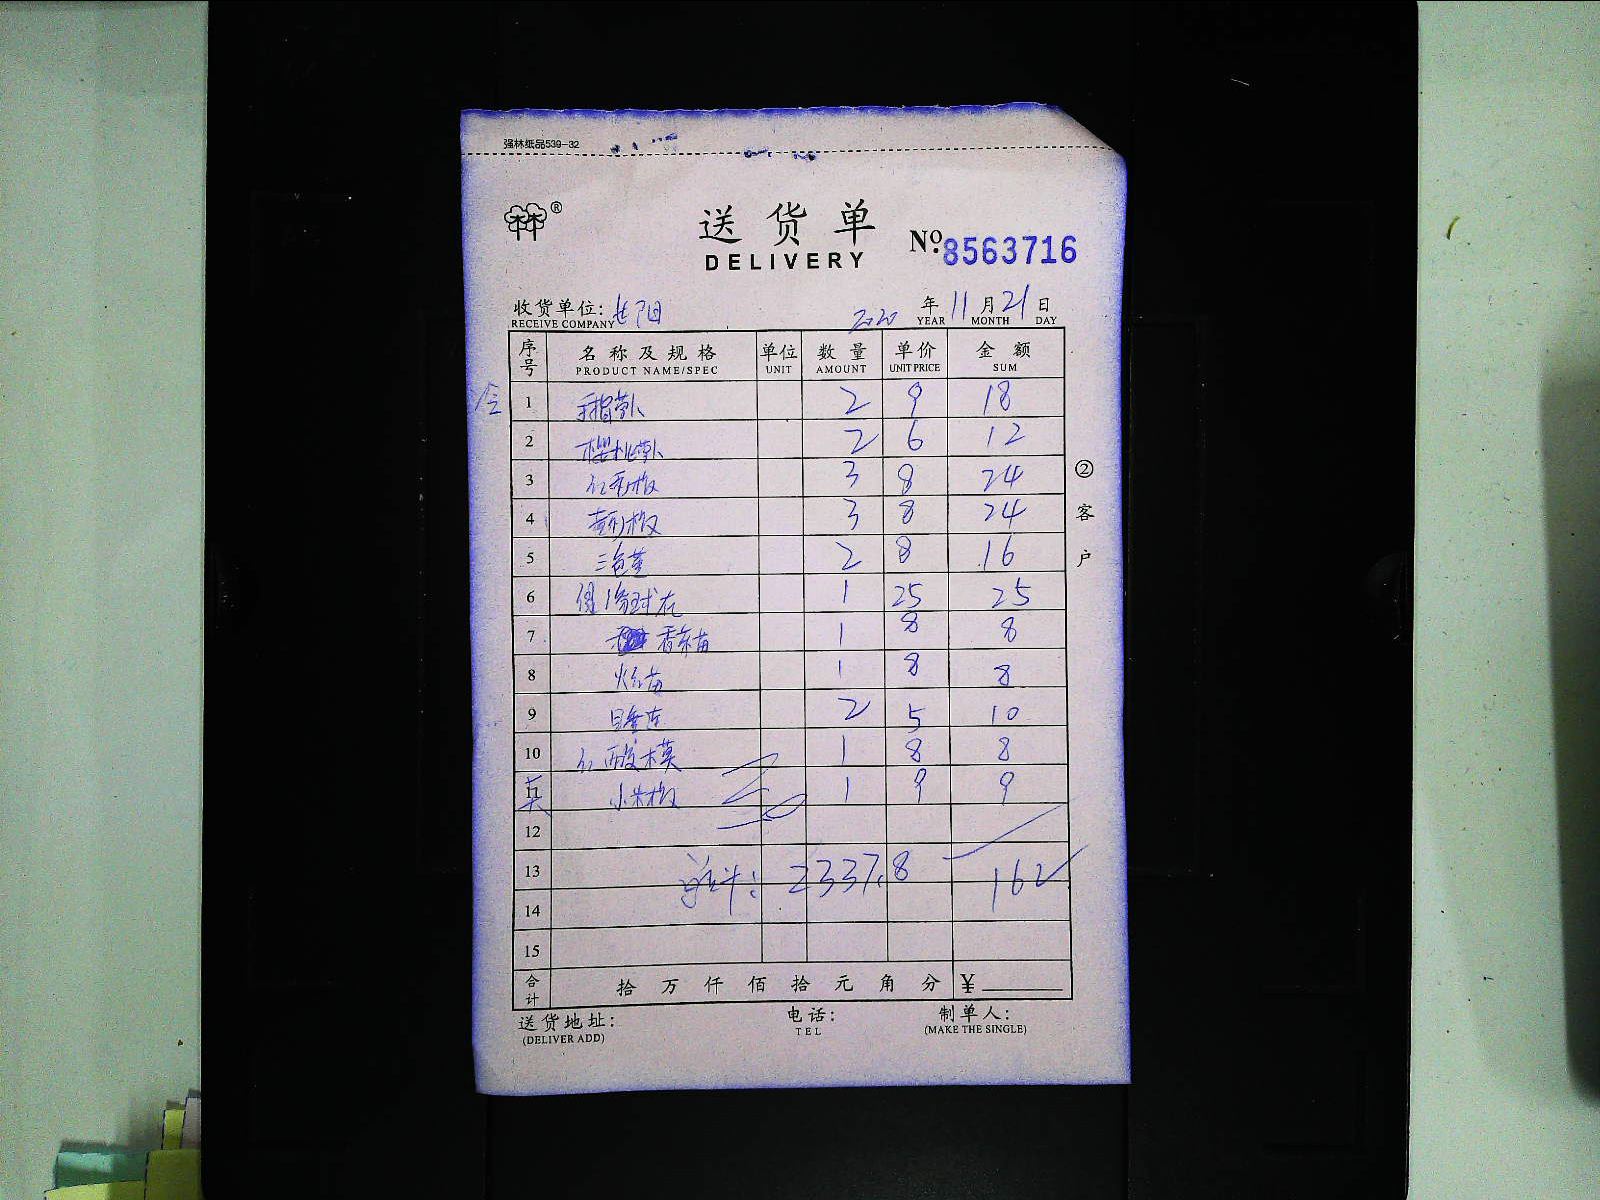 强林纸品539-32
®
送货单
DELIVERY
No.8563716
收货单位:
RECEIVE COMPANY
2020 年 11 月 21 日
YEAR MONTH DAY
序号 名称及规格 单位 数量 单价 金额
PRODUCT NAME/SPEC UNIT AMOUNT UNIT PRICE SUM
1 手指萝卜 2 9 18
2 樱桃萝卜 2 6 12
3 红彩椒 3 8 24
4 黄彩椒 3 8 24
5 三色堇 2 8 16
6 球 1 25 25
7 香菜苗 1 8 8
8 苗 1 8 8
9 2 5 10
10 红酸模 1 8 8
11 小米椒 1 9 9
12
13 总计: 2337.8 162
14
15
②客户
合计 拾 万 仟 佰 拾 元 角 分 ¥
送货地址: 电话: 制单人:
(DELIVER ADD) TEL (MAKE THE SINGLE)